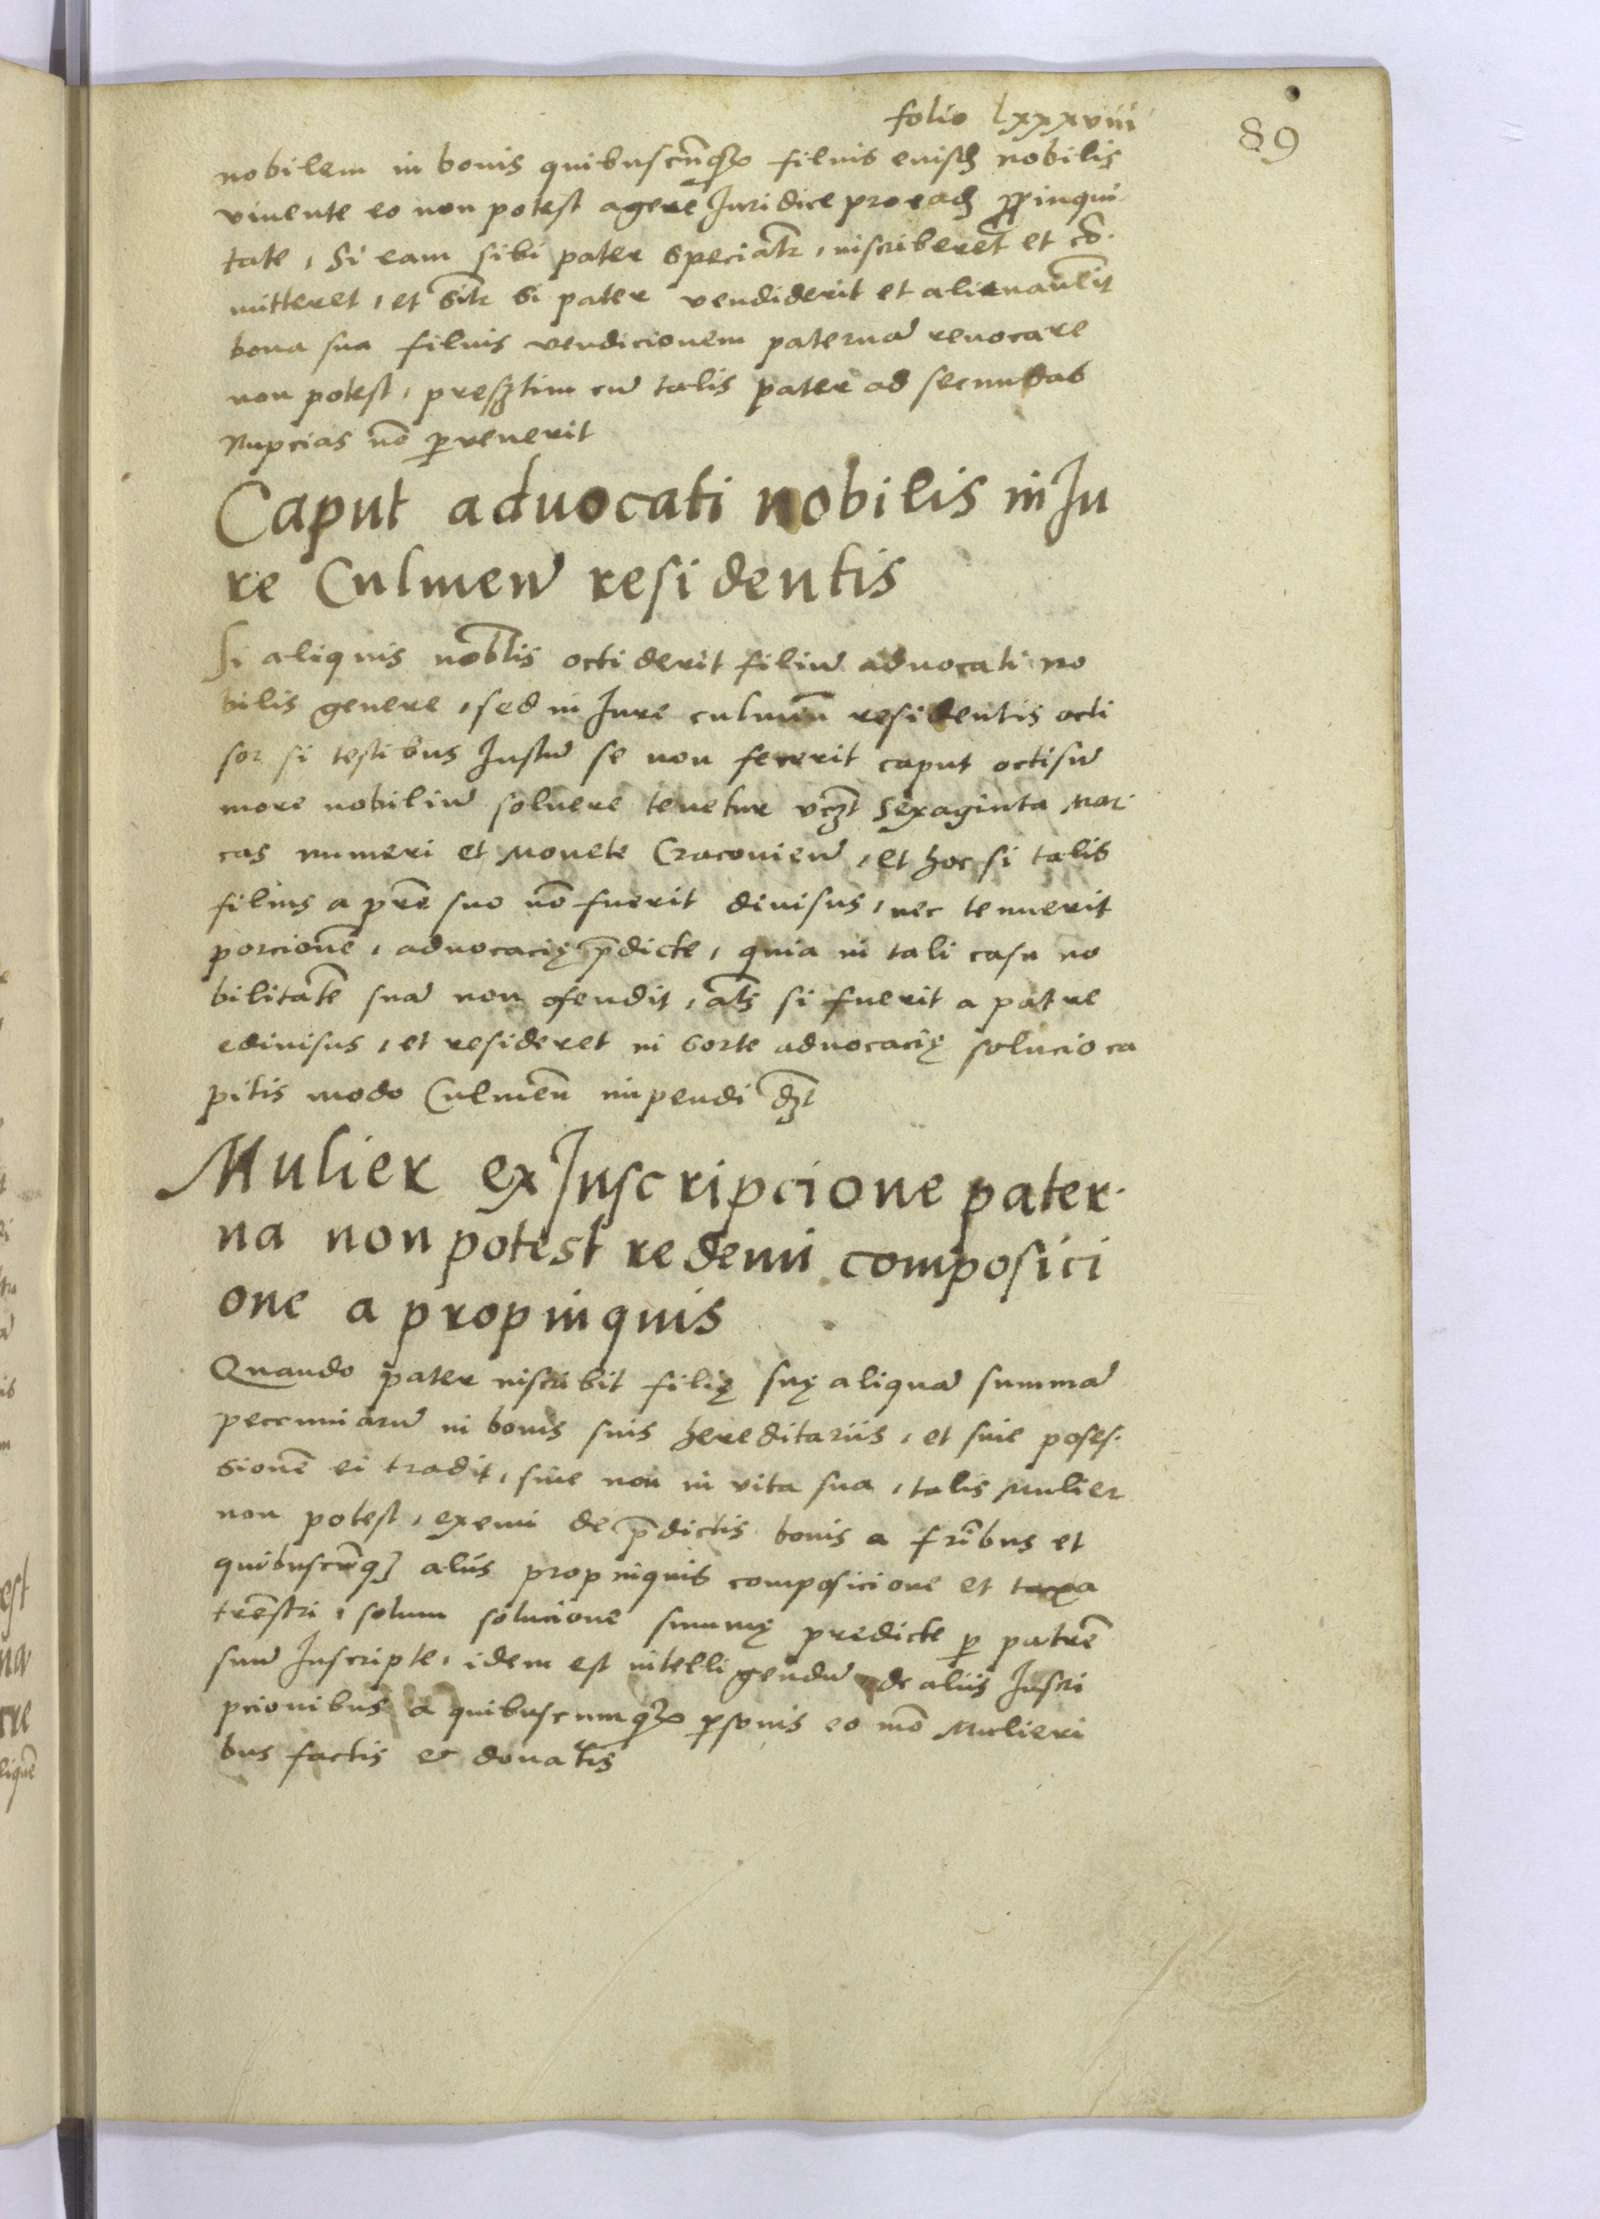 folio lxxxviii
89
nobilem in bonis quibuscūqȝ filius eiusdē nobilis
viuente eo non potest agere Juridice pro eadē ꝓpinqui
tate, Si eam sibi pater speciālr, inscriberet et cō·
mitteret, et Silr si pater vendiderit et alienauerit
bona sua filius vendicionem paternā reuocare
non potest, presertim cū talis pater ad secundas
Nupcias nō ꝑvenerit
Caput aduocati nobilis in Ju
re Culmeñ residentis
Si aliquis noblis occiderit filiū aduocati no
bilis genere, sed in Jure culmeñ residentis occi
sor si testibus Justū se non fecerit caput occisū
more nobiliū soluere tenetur vcȝt Sexaginta Mar·
cas numeri et Monete Cracovieñ, et hoc si talis
filius a pre suo nō fuerit diuisus, nec tenuerit
porcionē, aduocacię p̄dicte, quia in tali casu no
bilitatē suā non ofendit, als si fuerit a patre
ediuisus, et resideret in sorte aduocacię solucio ca
pitis modo Culmeñ inpendi dȝt
Mulier ex Inscripcione pater·
na non potest redemi composici
one a propinquis
Quando pater inscribit filię suę aliquā summā
peccuniarū in bonis suis hereditariis, et siue poses·
sionē ei tradit, siue non in vita sua, talis Mulier
non potest, exemi de p̄dictis bonis a fribus et
quibuscūqȝ aliis propinquis composicione et taxa
trēstri, solum solucione summę predicte ꝑ patrē
suū Inscripte, idem est intelligendū de aliis Inscri
pcionibus a quibuscumqȝ ꝑsonis eo mō Mulieri
bus factis et donatis